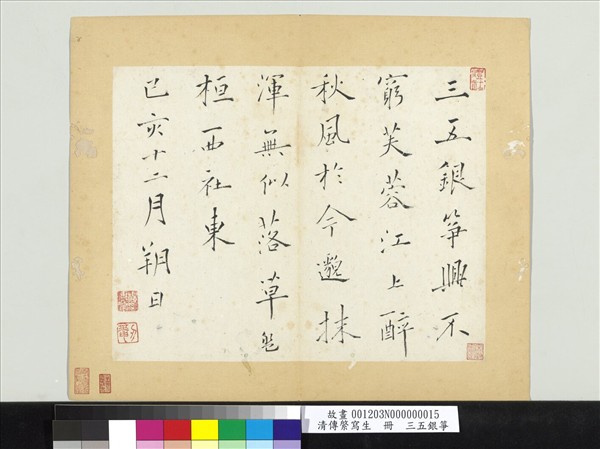 三五銀箏興不
窮芙蓉江上醉
秋風於今邈抹
渾無似落草盤
桓西社東
己亥十二月朔日
故畫 001203N000000015
清傳綮寫生 冊 三五銀箏